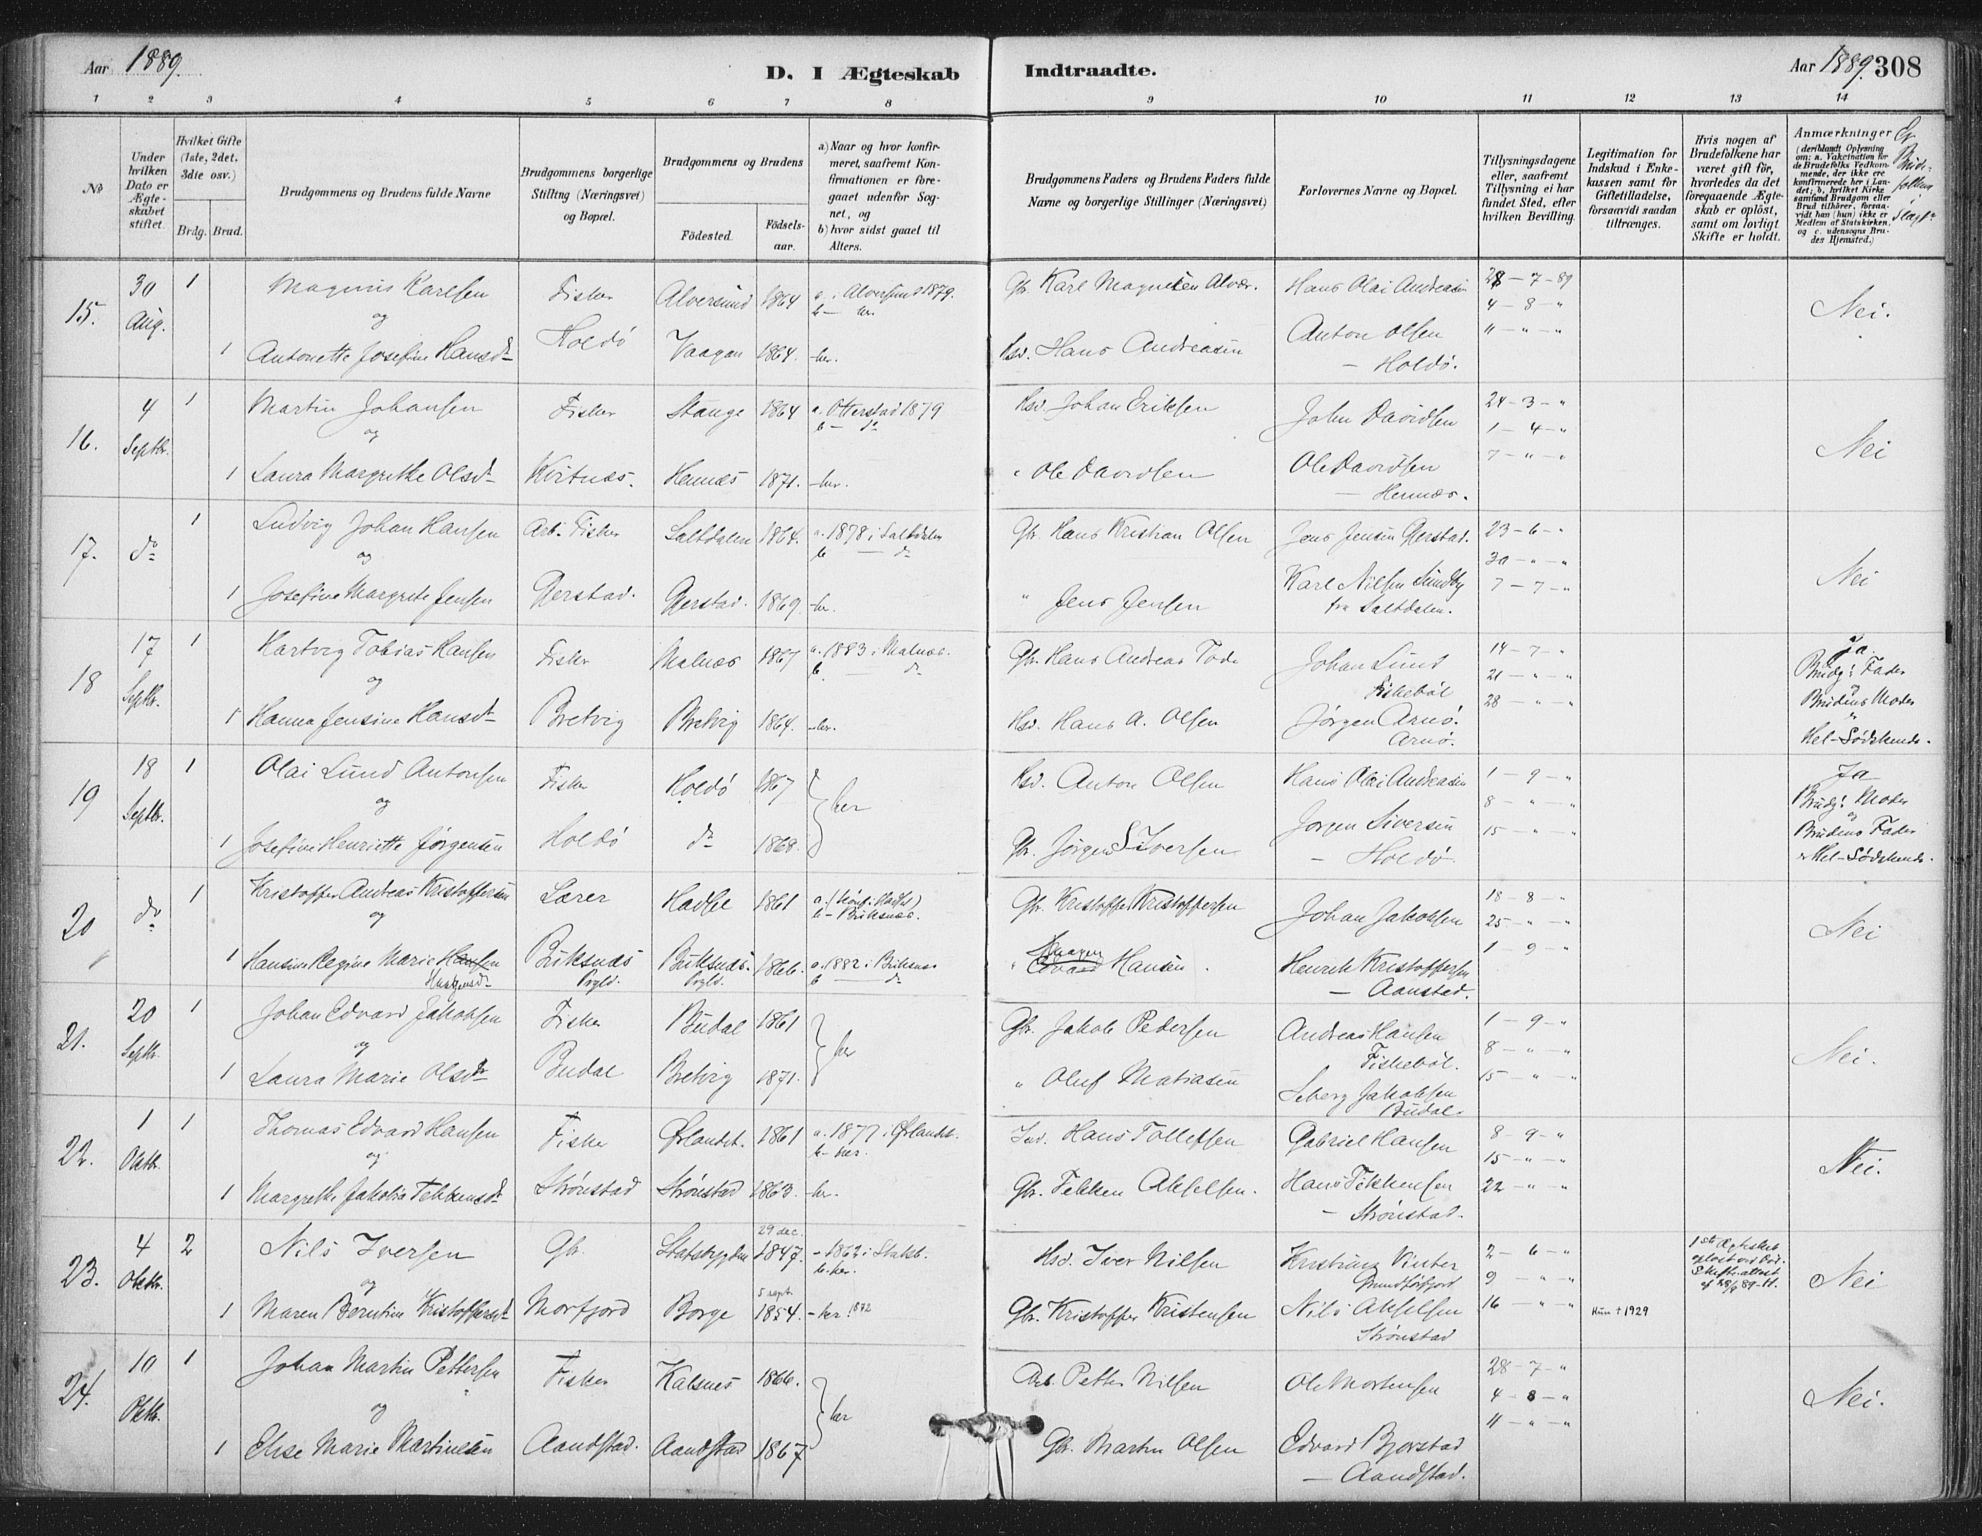 Aar 1889.
D. I Ægteskab Indtraadte.
Aar 1889. 308
1 2 3 4 5 6 7 8 9 10 11 12 13 14
No
Under hvilken Dato er Ægteskabet stiftet.
Hvilket Gifte (1ste, 2det, 3die osv.)
Brdg. Brud.
Brudgommens og Brudens fulde Navne
Brudgommens borgerlige Stilling (Næringsvei) og Bopæl.
Brudgommens og Brudens
Fødested. Fødselsaar.
a) Naar og hvor konfirmeret, saafremt Konfirmationen er foregaaet udenfor Sognet, og
b) hvor sidst gaaet til Alters.
Brudgommens Faders og Brudens Faders fulde Navne og borgerlige Stillinger (Næringsvei)
Forlovernes Navne og Bopæl.
Tillysningsdagene eller, saafremt Tillysning ei har fundet Sted, efter hvilken Bevilling.
Legitimation for Indskud i Enkekassen samt for Giftetilladelse, forsaavidt saadan tiltrænges.
Hvis nogen af Brudefolkene har været gift før, hvorledes da det foregaaende Ægteskab er opløst, samt om lovligt Skifte er holdt.
Anmærkninger (deriblandt Oplysning om: a. Vakcination for de Brudefolks Vedkommende, der ikke ere konfirmerede her i Landet; b, hvilket Kirkesamfund Brudgom eller Brud tilhører, forsaavidt han (hun) ikke er Medlem af Statskirken, og c. udensogns Brudes Hjemsted.)
Er Brudfolkene Slægt
15. 30 Aug. 1 Magnus Karlsen Fisker Alversund 1864 a. Alversund 1879. b – her. Gbr. Karl Magnesen Alvær. Hans Olai Andreasen 28 – 7 – 89 Nei.
og Holdö Anton Olsen 4 – 8 – "
1 Antonette Josefine Hansdr Vaagan 1864. – her. Hsd. Hans Andreasen – Holdö. 11 – " – "
16. 4 Septbr. 1 Martin Johansen Fisker Stange 1864 a. Otterstad 1879 b – do Hsd. Johan Eriksen John Davidsen 24 – 3 – " Nei
og 1 – 4 – "
1 Laura Margrethe Olsdr Hennæs 1871. – her. " Ole Davidsen Ole Davidsen – Hennæs. 7 – " – "
17. do 1 Ludvig Johan Hansen Arb. Fisker Saltdalen 1864. a. 1878 i Saltdalen b – do Gbr. Hans Kristian Olsen Jens Jensen Gjerstad. 23 – 6 – " Nei
og 30 – " – "
1 Josefine Margrete Jensen Gjerstad. Gjerstad. 1869. – her. " Jens Jensen Karl Nilsen Sundby fra Saltdalen. 7 – 7 – "
18 17 Septbr. 1 Hartvig Tobias Hansen Fisker Malnæs 1867 a. 1883 i Malnæs. b. – do Gbr. Hans Andreas Johan Lund Fiskebøl 14 – 7 – " Ja
og 21 – " – " Brudg: Fader og Brudens Moder
1 Hanna Jensine Hansdr Bretvig Bretvig 1864. – her. Hsd. Hans A. Olsen Jørgen Arnö. Arnö. 28 – " – " Hel-Sødskende.
19 18 Septbr. 1 Olai Lund Antonsen Fisker Holdö 1867 her Hsd. Anton Olsen Hans Olai Andreasen 1 – 9 – " Ja
og 8 – " – " Brudg: Moder og Brudens Fader
1 Josefine Henriette Jørgensen Holdö do 1868. Gbr. Jørgen Siversen Jørgen Siversen – Holdö. 15 – " – " Hel-Sødskende.
20 do 1 Kristoffer Andreas Kristoffersen Lærer Hadsel 1861 a. (Konf. i Hadsel) b – Buksnæs. Gbr. Kristoffer Kristoffersen Johan Jakobsen 18 – 8 – " Nei
og 25 – " – "
1 Hansine Regine Marie Hansen Buksnæs Prgld. Buksnæs. Prgld. 1866. a. 1882 i Buksnæs b – do " Edvard Hansen Henrik Kristoffersen – Aanstad. 1 – 9 – "
21. 20 Septbr. 1 Johan Edvard Jakobsen Fisker Budal 1861 her Gbr. Jakob Pedersen Andreas Hansen Fiskebøl. 1 – 9 – " Nei.
og 8 – " – "
1 Laura Marie Olsdr Budal Bretvig 1871. " Oluf Matiasen Seberg Jakobsen Budal. 15 – " – "
22. 1 Oktbr. 1 Thomas Edvard Hansen Fisker Ørlandet. 1861 a. 1877 i Ørlandet. b – her. Ind. Hans Tollefsen Gabriel Hansen 8 – 9 – " Nei.
og 15 – " – "
1 Margrethe Jakobia Tekkensdr Strönstad Strönstad 1863. – her. Gbr. Tekken Akselsen. Hans Tekkensen – Strönstad. 22 – " – "
23. 4 Oktbr. 2 Nils Iversen Gbr. Statsbygden 29 dec. 1847. – 1862 i Statsb. b. her. Hsd. Iver Nilsen Kristian Vinter Grundforfjord 2 – 6 – " 1ste Ægteskab opløst ved Död. Skifteattest af 28/9 89 Nei
og 9 – " – "
1 Maren Berntine Kristoffersdr Morfjord Borge 5 sept 1854. – her. 1872 Gbr. Kristoffer Kristensen Nils Akselsen Strönstad 16 – " – " Hun † 1929
24. 10 Oktbr. 1 Johan Martin Pettersen Fisker Kalsnes 1866. her Arb. Petter Nilsen Ole Mortensen 28 – 7 – " Nei.
og 4 – 8 – "
1 Elise Marie Martinsen Aandstad. Aandstad 1867 Gbr. Martin Olsen Edvard Bjørstad – Aandstad. 11 – " – "